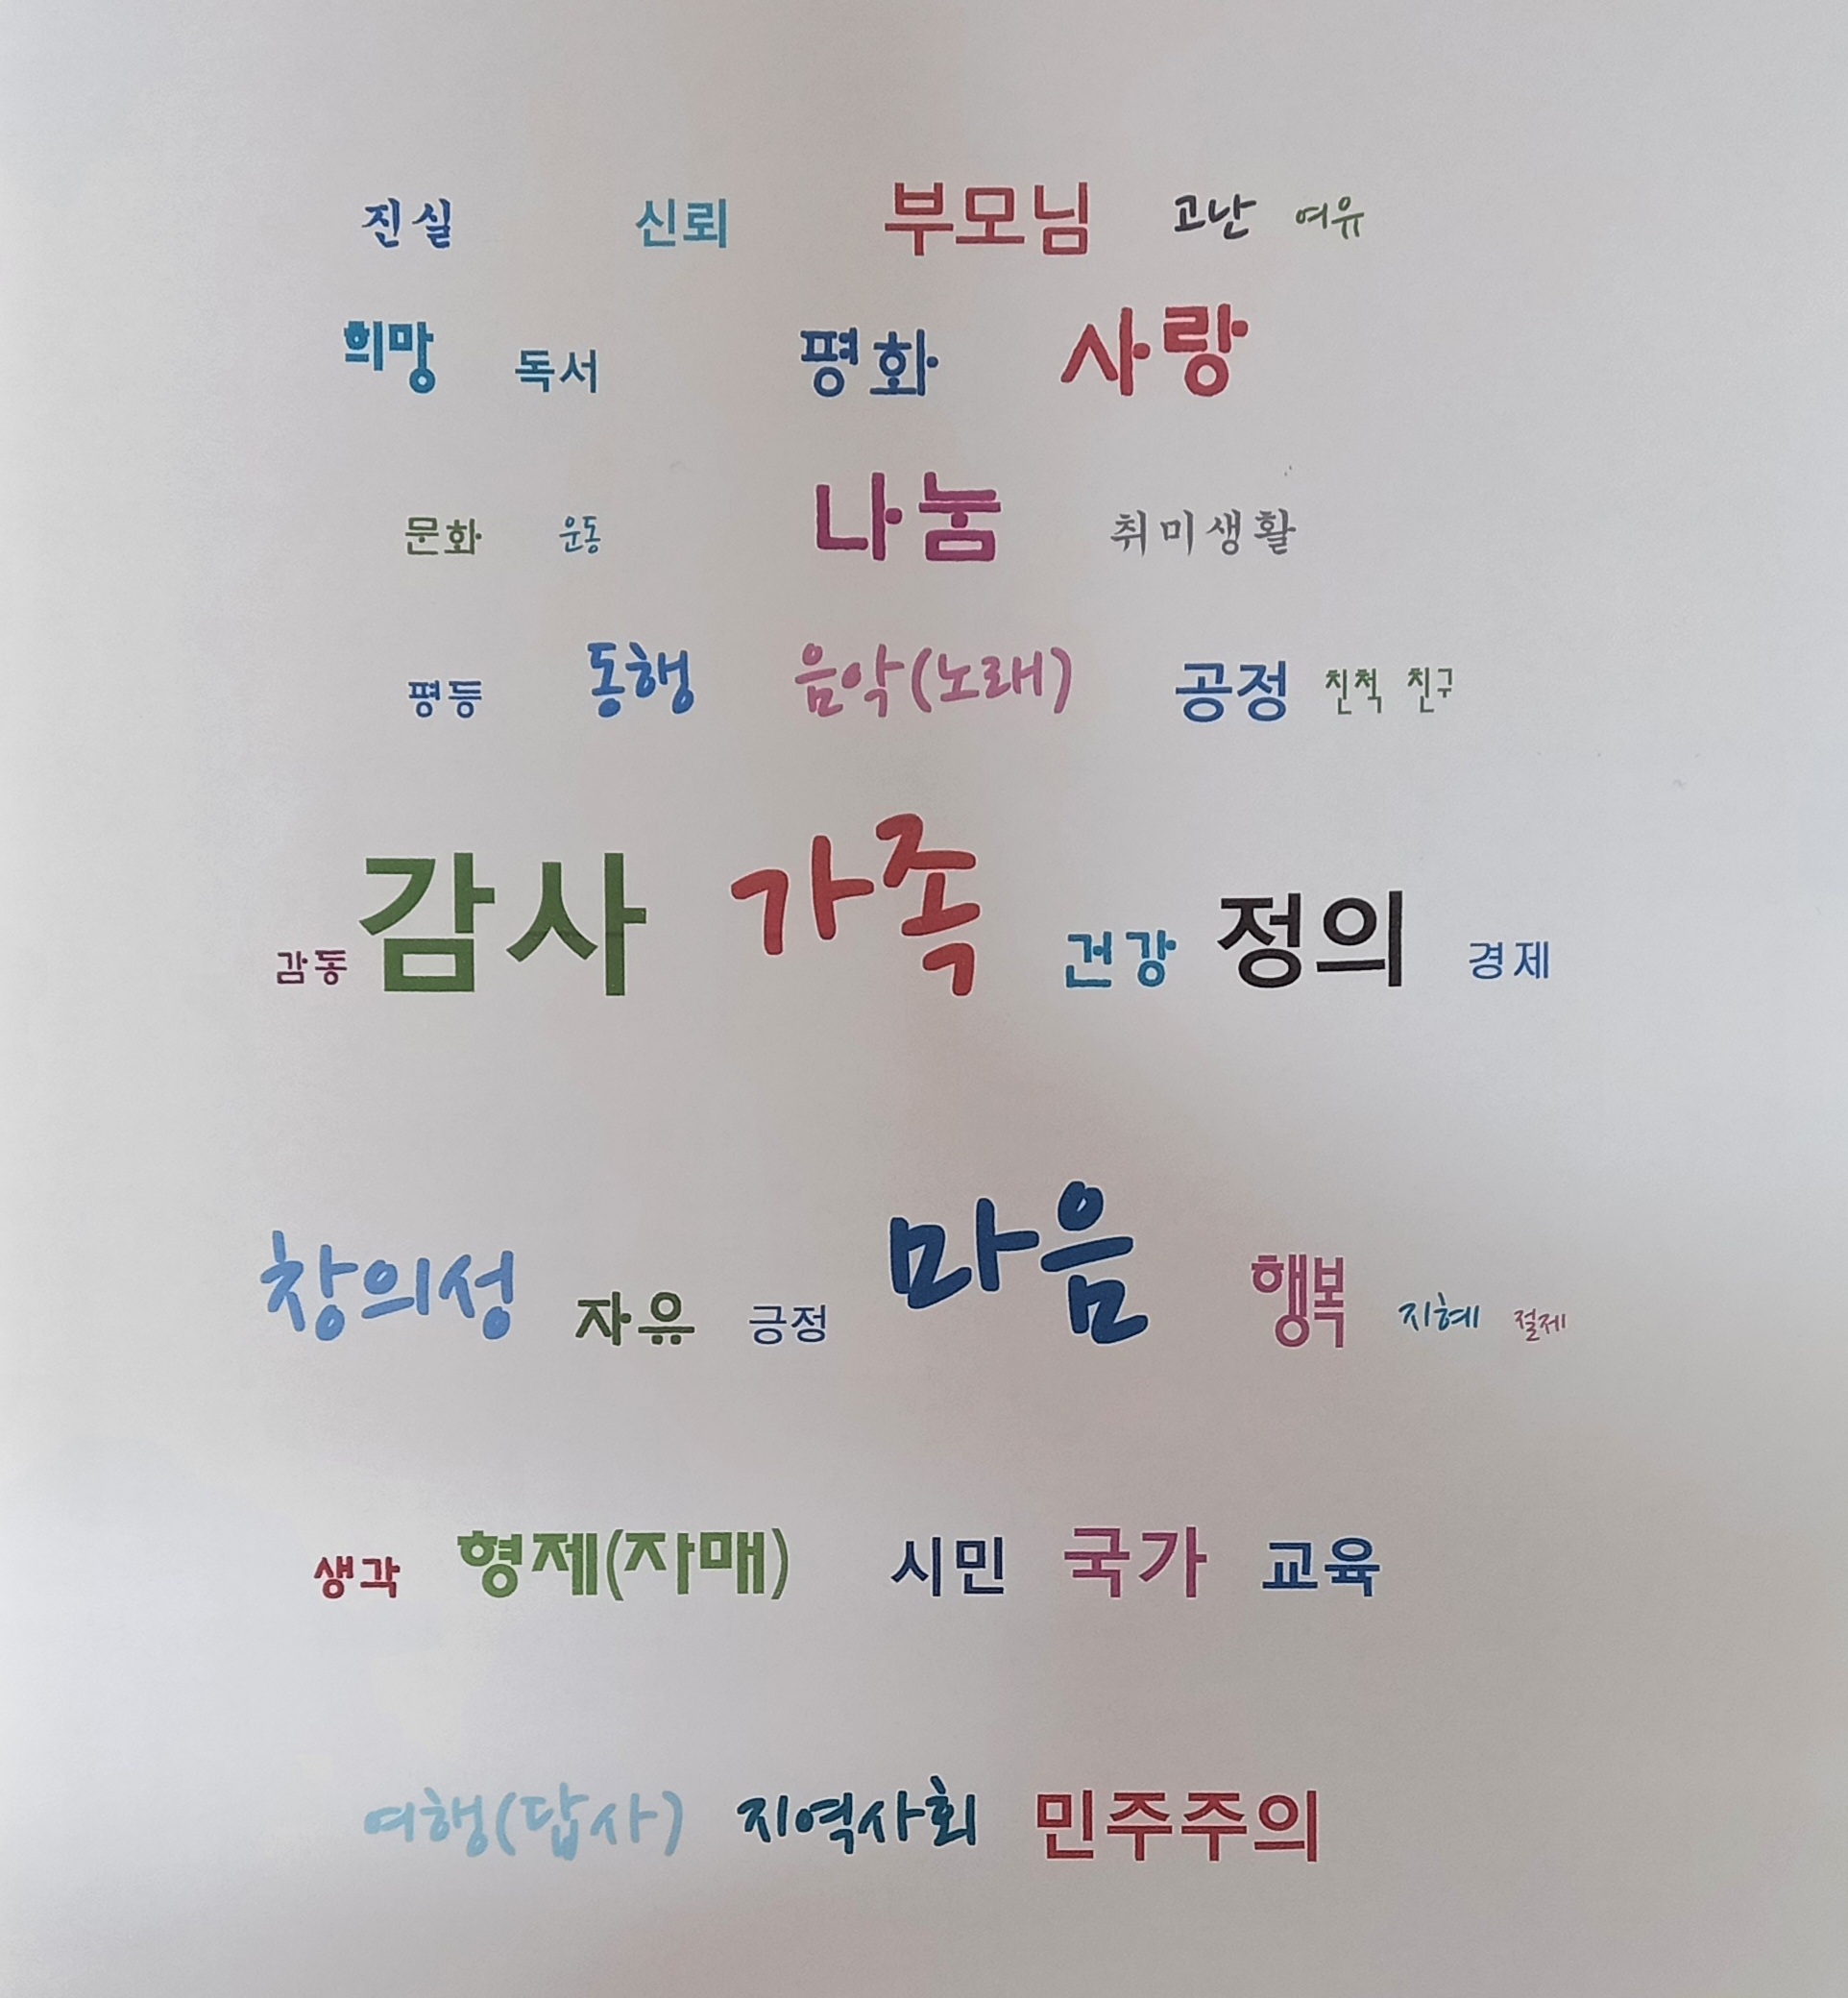 진실 신뢰 부모님 고난 여유
희망 독서 평화 사랑
문화 운동 나눔 취미생활
평등 동행 음악(노래) 공정 친척 친구
감동 감사 가족 건강 정의 경제
창의성 자유 긍정 마음 행복 지혜 절제
생각 형제(자매) 시민 국가 교육
여행(답사) 지역사회 민주주의